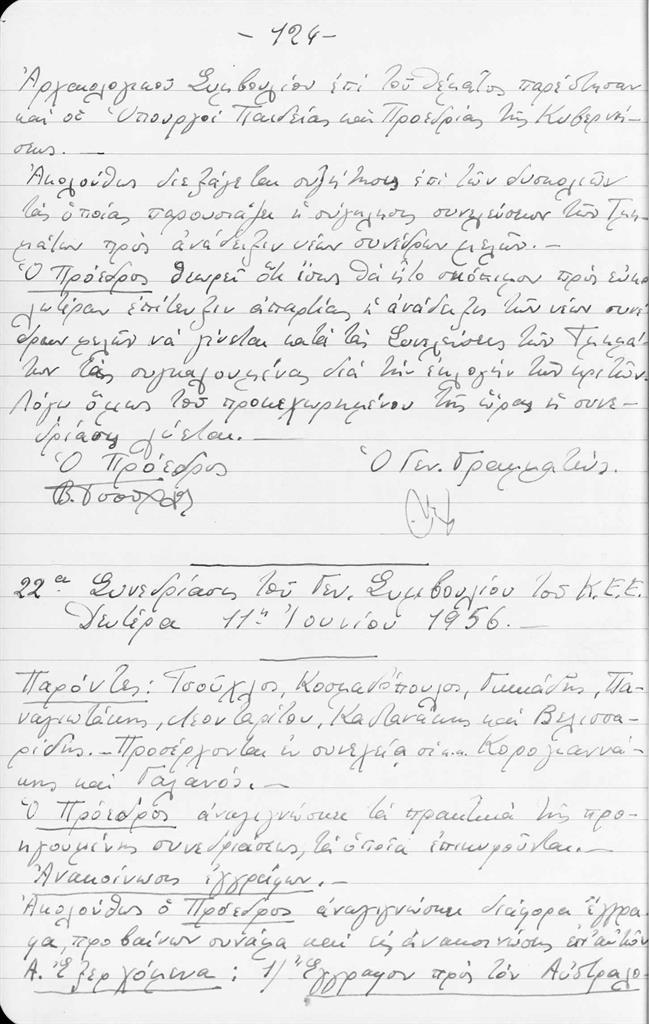 - 124 -
Ἀρχαιολογικοῦ Συμβουλίου ἐπὶ τοῦ θέματος παρέστησαν
καὶ οἱ Ὑπουργοὶ Παιδείας καὶ Προεδρίας τῆς Κυβερνή-
σεως. —
Ἀκολούθως διεξάγεται συζήτησις ἐπὶ τῶν δυσκολιῶν
τὰς ὁποίας παρουσιάζει ἡ σύγκλησις συνελεύσεων τῶν Τμη-
μάτων πρὸς ἀνάδειξιν νέων συνέδρων μελῶν. —
Ὁ Πρόεδρος θεωρεῖ ὅτι ἴσως θὰ ἦτο σκόπιμον πρὸς εὐκο-
λωτέραν ἐπίτευξιν ἀπαρτίας ἡ ἀνάδειξις τῶν νέων συνέ-
δρων μελῶν νὰ γίνεται κατὰ τὰς Συνελεύσεις τῶν Τμημά-
των τὰς συγκαλουμένας διὰ τὴν ἐκλογὴν τῶν κριτῶν.
Λόγῳ ὅμως τοῦ προκεχωρημένου τῆς ὥρας ἡ συνε-
δρίασις λύεται. —
Ὁ Πρόεδρος Ὁ Γεν. Γραμματεύς.
Β. Τσούχλος
22α Συνεδρίασις τοῦ Γεν. Συμβουλίου τοῦ Κ.Ε.Ε.
Δευτέρα 11η Ἰουνίου 1956. —
Παρόντες: Τσούχλος, Κοσμαδόπουλος, Γκικάδης, Πα-
ναγιωτάκης, Λεονταρίτου, Καστανάκης καὶ Βελισσα-
ρίδης. — Προσέρχονται ἐν συνεχείᾳ οἱ κ.κ. Κορογιαννά-
κης καὶ Γαλανός. —
Ὁ Πρόεδρος ἀναγιγνώσκει τὰ πρακτικὰ τῆς προ-
ηγουμένης συνεδριάσεως, τὰ ὁποῖα ἐπικυροῦνται. —
Ἀνακοίνωσις ἐγγράφων. —
Ἀκολούθως ὁ Πρόεδρος ἀναγιγνώσκει διάφορα ἔγγρα-
φα, προβαίνων συνάμα καὶ εἰς ἀνακοινώσεις ἐπ' αὐτῶν
Α. Ἐξερχόμενα: 1/ Ἔγγραφον πρὸς τὸν Αὐστραλο-